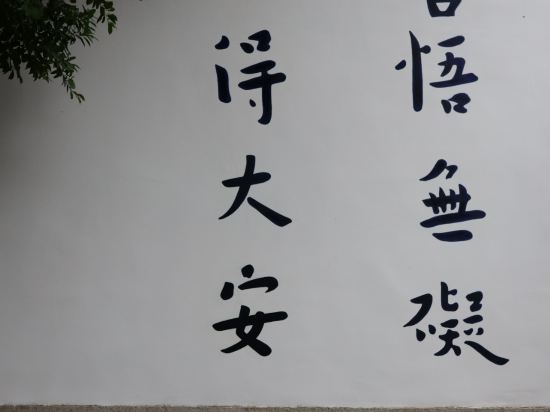 悟無礙
得大安